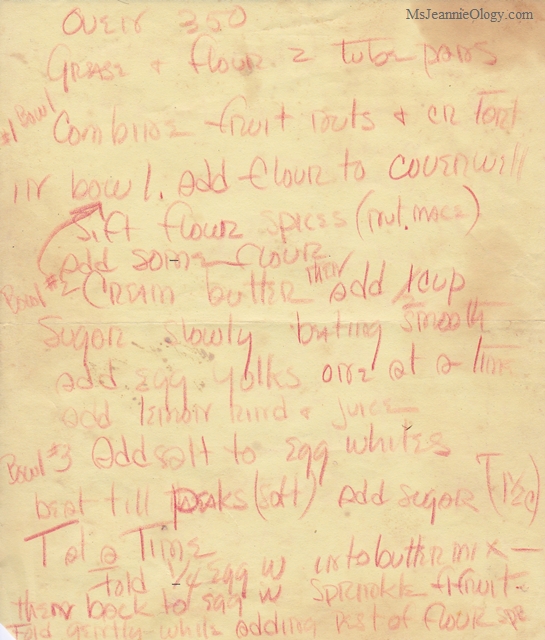 MsJeannieOlogy.com
OVEN 350
GREASE & flour 2 tube pans
#1 Bowl Combine fruit nuts & cr Tart
in bowl. Add flour to cover well
Sift flour spices (nut. mace)
Add some flour
Bowl #2 Cream butter then add 1 cup
Sugar slowly beating smooth
add egg yolks one at a time
add lemon rind & juice
Bowl #3 Add salt to egg whites
beat till peaks (soft) add sugar (1 1/2 c)
T at a Time
fold 1/4 egg w into butter mix —
then back to egg w sprinkle fruit
Fold gently while adding rest of flour